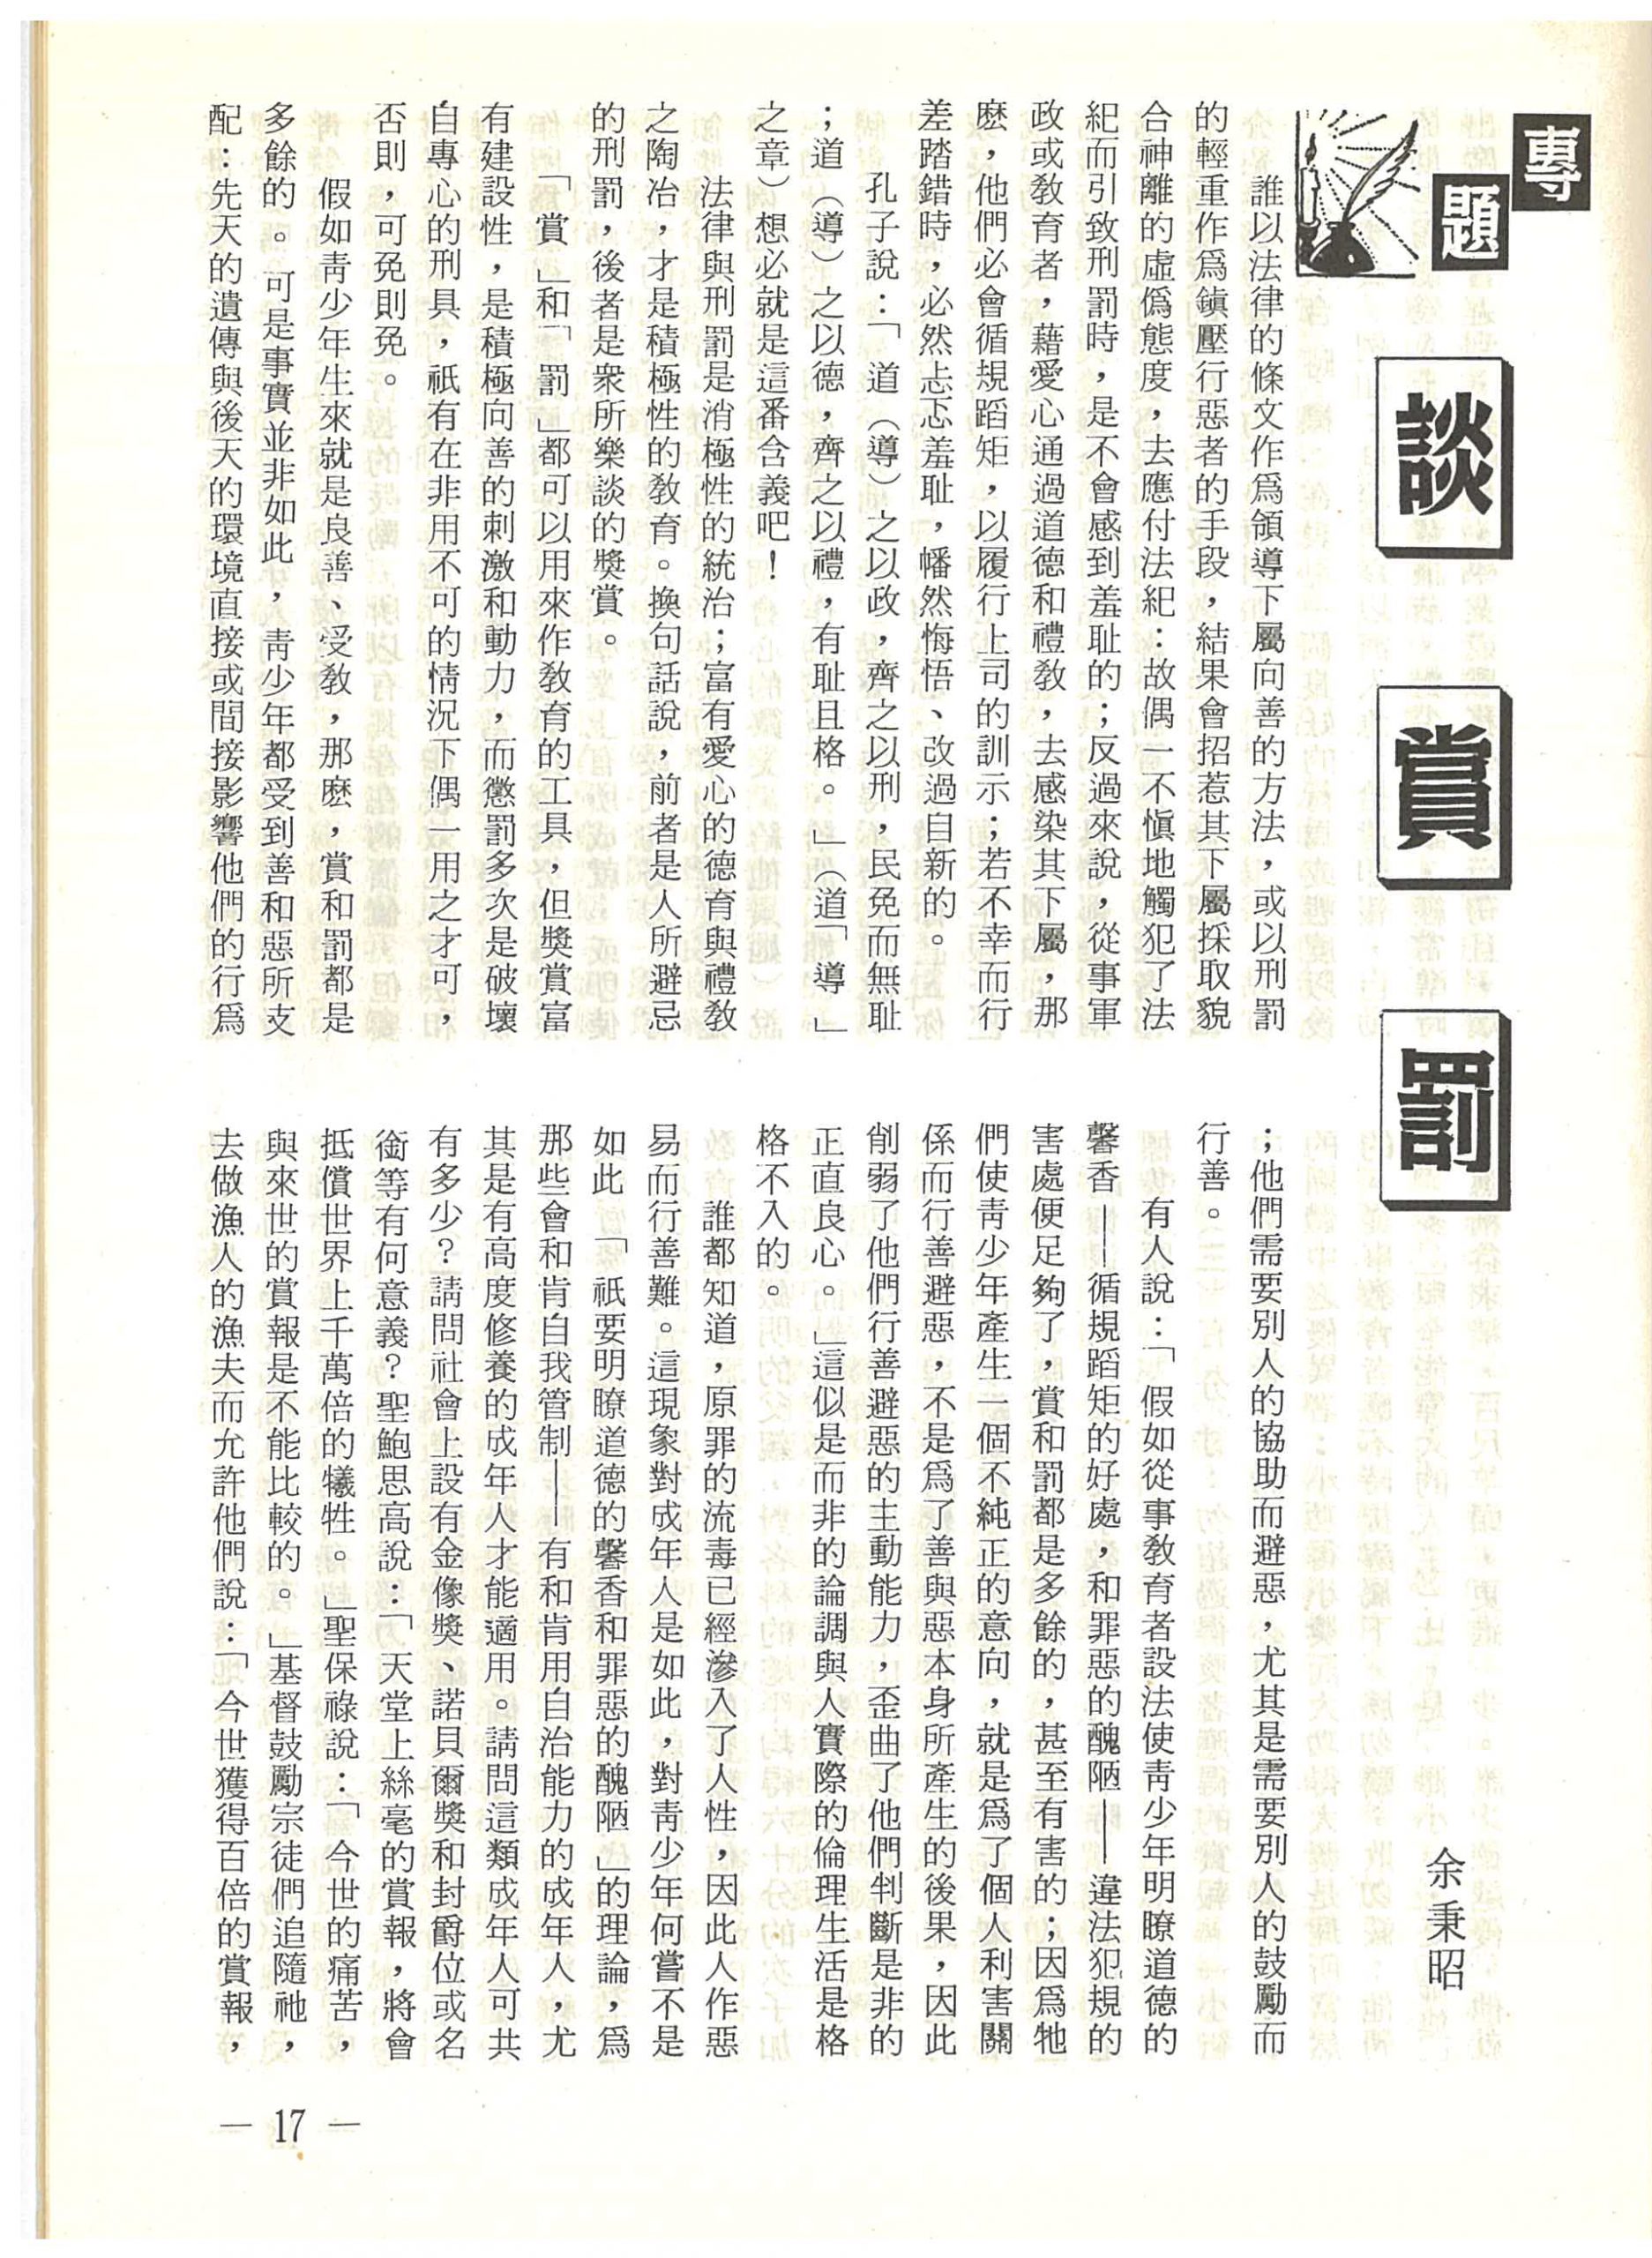 專題
談賞罰
余秉昭
誰以法律的條文作爲領導下屬向善的方法，或以刑罰
的輕重作爲鎮壓行惡者的手段，結果會招惹其下屬採取貌
合神離的虛僞態度，去應付法紀：故偶一不愼地觸犯了法
紀而引致刑罰時，是不會感到羞耻的；反過來說，從事軍
政或敎育者，藉愛心通過道德和禮敎，去感染其下屬，那
麽，他們必會循規蹈矩，以履行上司的訓示；若不幸而行
差踏錯時，必然忐忑羞耻，幡然悔悟、改過自新的。
孔子說：「道（導）之以政，齊之以刑，民免而無耻
；道（導）之以德，齊之以禮，有耻且格。」（道「導」
之章）想必就是這番含義吧！
法律與刑罰是消極性的統治；富有愛心的德育與禮敎
之陶冶，才是積極性的敎育。換句話說，前者是人所避忌
的刑罰，後者是衆所樂談的獎賞。
「賞」和「罰」都可以用來作敎育的工具，但獎賞富
有建設性，是積極向善的刺激和動力，而懲罰多次是破壞
自專心的刑具，祇有在非用不可的情況下偶一用之才可，
否則，可免則免。
假如靑少年生來就是良善、受敎，那麽，賞和罰都是
多餘的。可是事實並非如此，靑少年都受到善和惡所支
配：先天的遺傳與後天的環境直接或間接影響他們的行爲
；他們需要別人的協助而避惡，尤其是需要別人的鼓勵而
行善。
有人說：「假如從事敎育者設法使靑少年明瞭道德的
馨香——循規蹈矩的好處，和罪惡的醜陋——違法犯規的
害處便足夠了，賞和罰都是多餘的，甚至有害的；因爲牠
們使靑少年產生一個不純正的意向，就是爲了個人利害關
係而行善避惡，不是爲了善與惡本身所產生的後果，因此
削弱了他們行善避惡的主動能力，歪曲了他們判斷是非的
正直良心。」這似是而非的論調與人實際的倫理生活是格
格不入的。
誰都知道，原罪的流毒已經滲入了人性，因此人作惡
易而行善難。這現象對成年人是如此，對靑少年何嘗不是
如此「祇要明瞭道德的馨香和罪惡的醜陋」的理論，爲
那些會和肯自我管制——有和肯用自治能力的成年人，尤
其是有高度修養的成年人才能適用。請問這類成年人可共
有多少？請問社會上設有金像獎、諾貝爾獎和封爵位或名
銜等有何意義？聖鮑思高說：「天堂上絲毫的賞報，將會
抵償世界上千萬倍的犧牲。」聖保祿說：「今世的痛苦，
與來世的賞報是不能比較的。」基督鼓勵宗徒們追隨祂，
去做漁人的漁夫而允許他們說：「今世獲得百倍的賞報，
— 17 —